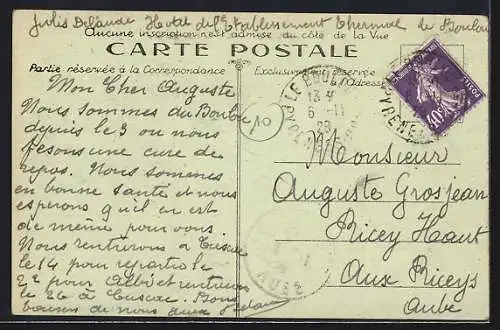 Jules Delaude Hotel de l'Etablissement Thermal de Boulou
Aucune inscription n'est admise du côté de la Vue
CARTE POSTALE
Partie réservée à la Correspondance
Exclusivement réservée
à l'Adresse
Mon Cher Auguste
Nous sommes du Boulou
depuis le 3 ou nou
fesons une cure de
repos. Nous sommes
en bonne santé et nous
esperons qu'il en est
de même pour vous.
Nous rentrerons a
le 14 pour repartir le
pour Albi et rentrer
le 26 a
de nous deux
LE BOULOU
13
6 - 11
PYRENEES
10
40c
Monsieur
Auguste Grosjean
Ricey Haut
Aux Riceys
Aube
AUDE